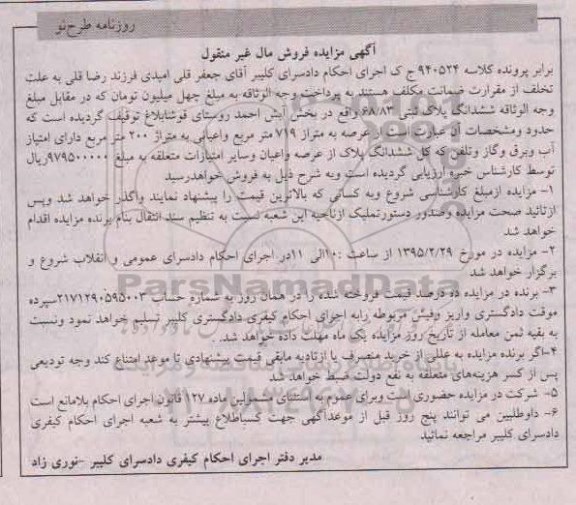 روزنامه طرح نو
آگهی مزایده فروش مال غیر منقول
برابر پرونده کلاسه ۹۴۰۵۲۴ ج ک اجرای احکام دادسرای کلیبر آقای جعفر قلی امیدی فرزند رضا قلی به علت
تخلف از مقرارت ضمانت مکلف هستند به پرداخت وجه الوثاقه به مبلغ چهل میلیون تومان که در مقابل مبلغ
وجه الوثاقه ششدانگ پلاک ثبتی ۶۸/۸۳ واقع در بخش آبش احمد روستای قوشابلاغ توقیف گردیده است که
حدود ومشخصات آن عبارت است از عرصه به متراژ ۷۱۹ متر مربع واعیانی به متراژ ۲۰۰ متر مربع دارای امتیاز
آب وبرق وگاز وتلفن که کل ششدانگ پلاک از عرصه واعیان وسایر امتیازات متعلقه به مبلغ ۹۷۹۵۰۰۰۰۰ریال
توسط کارشناس خبره ارزیابی گردیده است وبه شرح ذیل به فروش خواهدرسید
۱- مزایده ازمبلغ کارشناسی شروع وبه کسانی که بالاترین قیمت را پیشنهاد نمایند واگذار خواهد شد وپس
ازتائید صحت مزایده وصدور دستورتملیک ازناحیه این شعبه نسبت به تنظیم سند انتقال بنام برنده مزایده اقدام
خواهد شد
۲- مزایده در مورخ ۱۳۹۵/۲/۲۹ از ساعت :۱۰الی ۱۱در اجرای احکام دادسرای عمومی و انقلاب شروع و
برگزار خواهد شد
۳- برنده در مزایده ده درصد قیمت فروخته شده را در همان روز به شماره حساب ۲۱۷۱۲۹۰۵۹۵۰۰۳سپرده
موقت دادگستری واریز وفیش مربوطه رابه اجرای احکام کیفری دادگستری کلیبر تسلیم خواهد نمود ونسبت
به بقیه ثمن معامله از تاریخ روز مزایده یک ماه مهلت داده خواهد شد.
۴-اگر برنده مزایده به عللی از خرید منصرف یا ازتادیه مابقی قیمت پیشنهادی تا موعد امتناع کند وجه تودیعی
پس از کسر هزینه‌های متعلقه به نفع دولت ضبط خواهد شد
۵- شرکت در مزایده حضوری است وبرای عموم به استثنای مشمولین ماده ۱۲۷ قانون اجرای احکام بلامانع است
۶- داوطلبین می توانند پنج روز قبل از موعدآگهی جهت کسب اطلاع بیشتر به شعبه اجرای احکام کیفری
دادسرای کلیبر مراجعه نمائید
مدیر دفتر اجرای احکام کیفری دادسرای کلیبر -نوری زاد
ParsNamadData